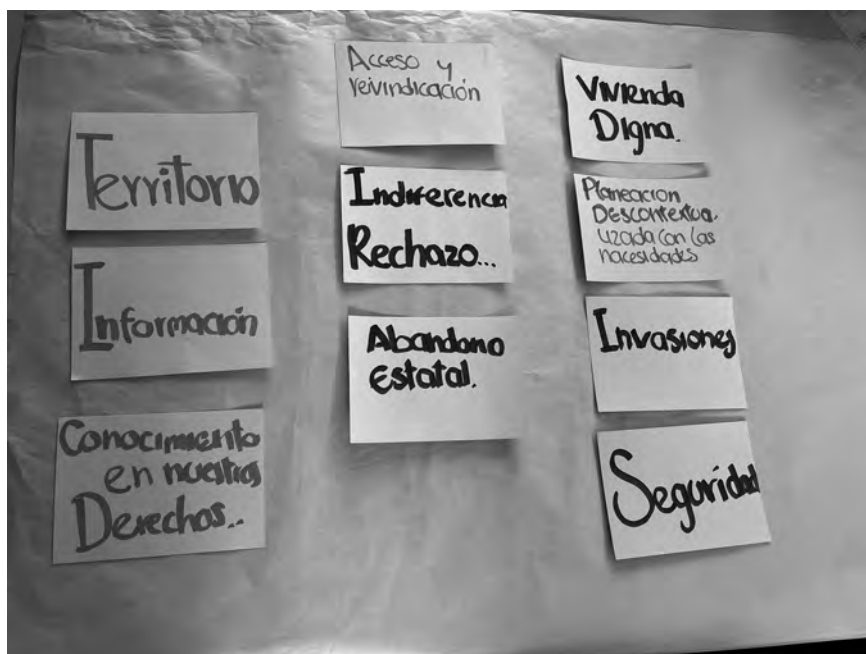 Territorio
Información
Conocimiento
en nuestros
Derechos...
Acceso y
reivindicación
Indiferencia
Rechazo...
Abandono
Estatal.
Vivienda
Digna.
Planeacion
Descontextua.
lizada con las
nacesidades
Invasiones
Seguridad